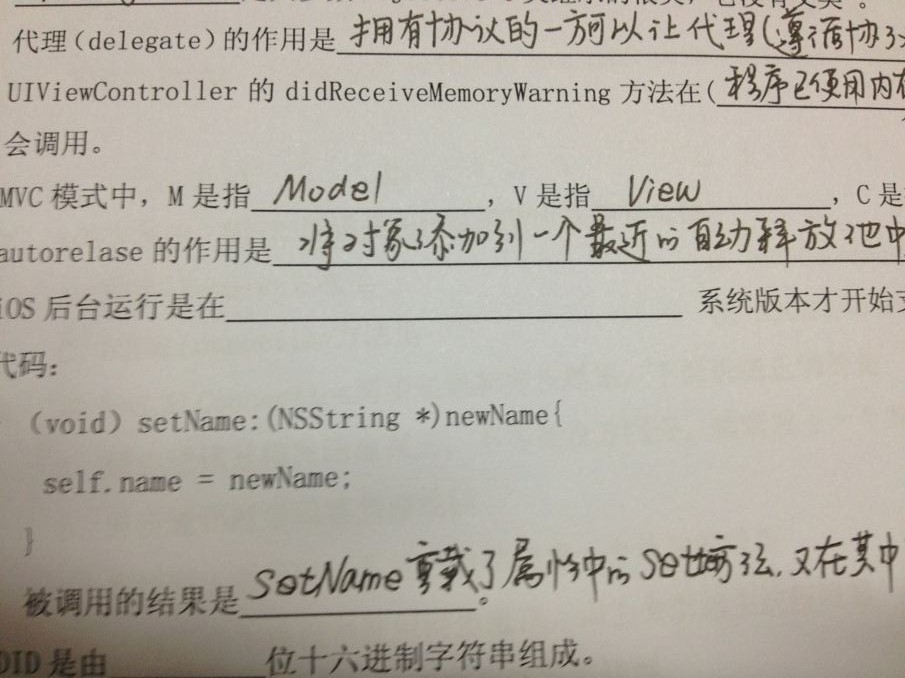 代理(delegate)的作用是 拥有协议的一方可以让代理(遵循协
UIViewController 的 didReceiveMemoryWarning 方法在(程序已使用内存
会调用。
MVC 模式中，M 是指 Model ，V 是指 View ，C 是
autorelase 的作用是 将对象添加到一个最近的自动释放池中
iOS 后台运行是在 系统版本才开始支
代码：
(void) setName:(NSString *)newName{
self.name = newName;
}
被调用的结果是 SetName 重载了属性中的 Set方法，又在其中
。
DID 是由 位十六进制字符串组成。